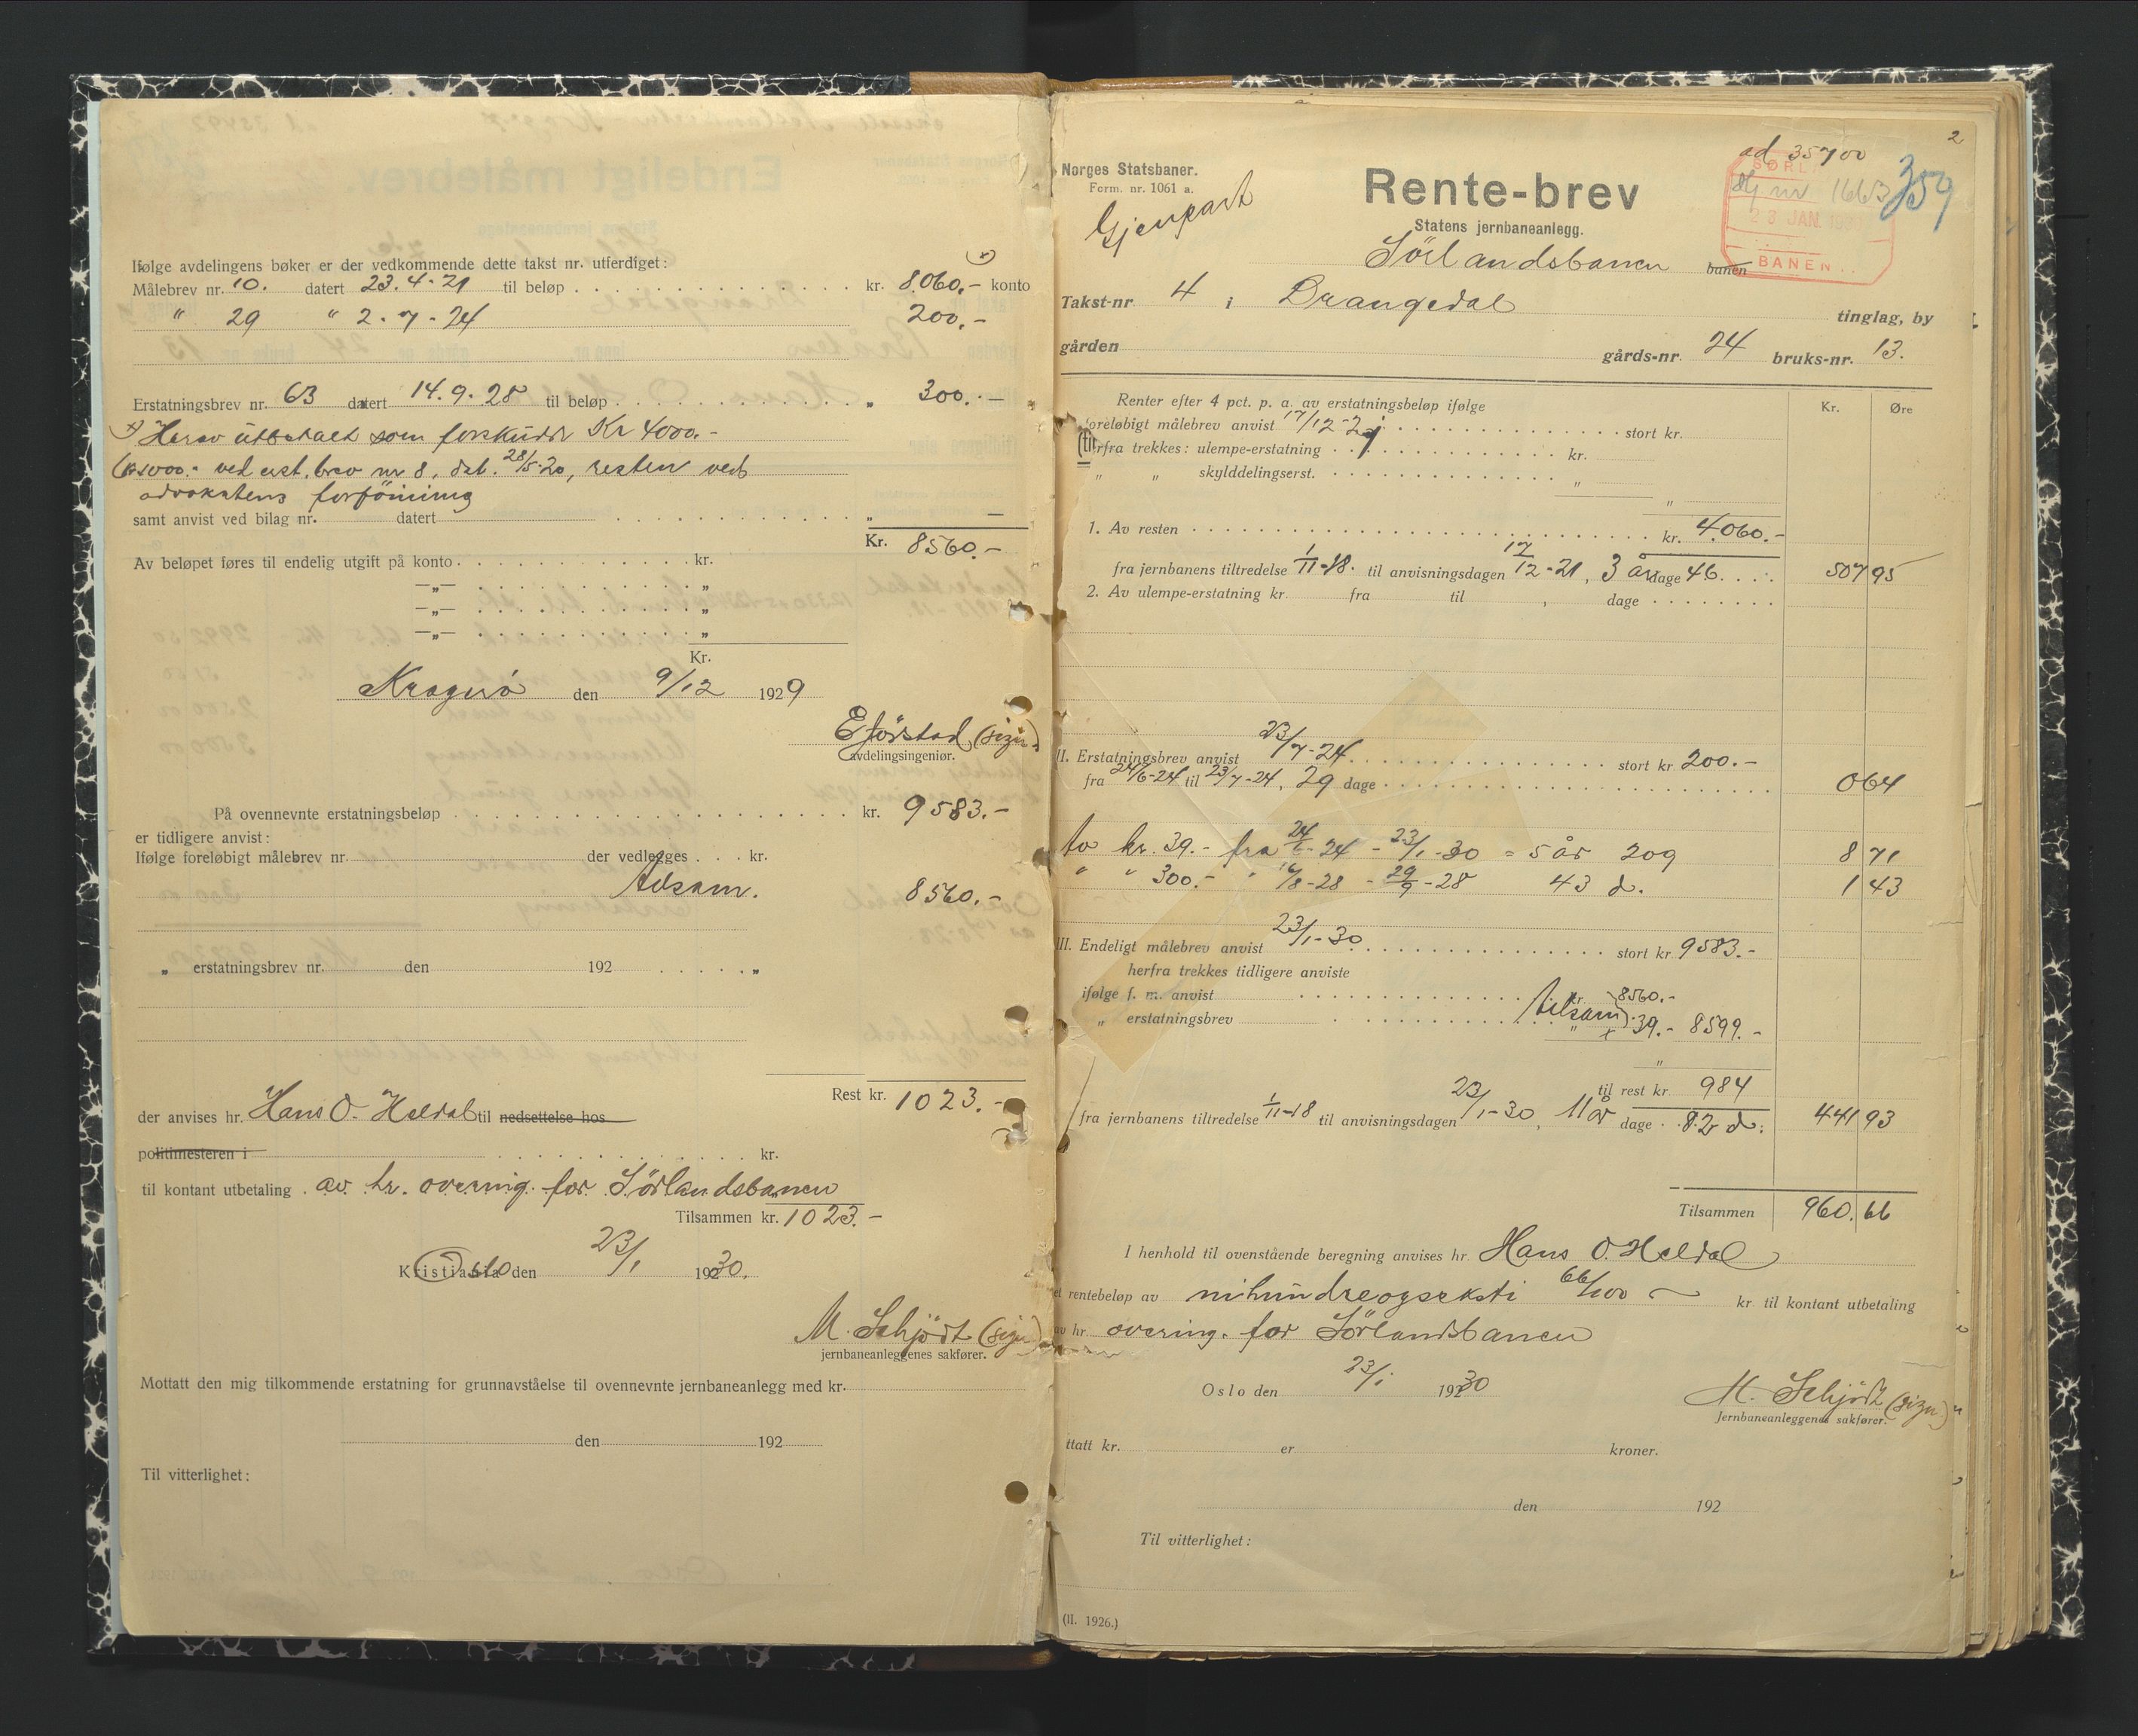 Ifølge avdelingens bøker er der vedkommende dette takst nr. utferdiget:
x)
Målebrev nr. 10. datert 23.4-21 til beløp kr. 8.060.- konto
" 29 " 2-7-24 200.-
Erstatningsbrev nr. 63 datert 14.9.28 til beløp " 300.-
x) Herav utbetalt som forskudd Kr 4000.-
(kr 1000.- ved erst.brev nr 8, dat. 28/5-20, resten ved
advokatens forföining
samt anvist ved bilag nr. datert " —
Kr. 8560.-
Av beløpet føres til endelig utgift på konto kr.
—„— „
—„— „
—„— „
Kr.
Kragerö den 9/12 1929
E Jörstad (sign.)
avdelingsingeniør.
På ovennevnte erstatningsbeløp kr. 9583.-
er tidligere anvist:
Ifølge foreløbigt målebrev nr. der vedlegges kr.
tilsam. 8560.-
„ erstatningsbrev nr. den 192 „
Rest kr. 1023.-
der anvises hr. Hans O. Heldal til nedsettelse hos
politimesteren i kr.
til kontant utbetaling av hr. overing. for Sörlandsbanen
Tilsammen kr. 1023.-
Kristiania Oslo den 23/1 1930.
M. Schjödt (sign)
jernbaneanleggenes sakfører.
Mottatt den mig tilkommende erstatning for grunnavståelse til ovennevnte jernbaneanlegg med kr.
den 192
Til vitterlighet:
2
ad 35700
Norges Statsbaner.
Form. nr. 1061 a.
Gjenpart
Rente-brev
Statens jernbaneanlegg.
SØRL
nr 1663
359
23 JAN. 1930
BANEN
Sörlandsbanen banen
Takst-nr 4 i Drangedal tinglag, by
gården gårds-nr. 24 bruks-nr. 13.
Renter efter 4 pct. p. a. av erstatningsbeløp ifølge Kr. Øre
foreløbigt målebrev anvist 17/12-21 stort kr.
herfra trekkes: ulempe-erstatning kr.
„ „ skylddelingserst. „
„
1. Av resten kr. 4.060.-
fra jernbanens tiltredelse 1/11-18. til anvisningsdagen 17/12-21, 3 år dage 46 507 95
2. Av ulempe-erstatning kr. fra til , dage
II. Erstatningsbrev anvist 23/7-24 stort kr 200.-
fra 24/6-24 til 23/7-24, 29 dage 0 64
Av kr. 39.- fra 24/6-24 - 23/1-30 = 5 år 209 8 71
" " 300.- " /8-28 - 29/9-28 43 d. 1 43
III. Endeligt målebrev anvist 23/1-30 stort kr 9583.-
herfra trekkes tidligere anviste
ifølge f. m. anvist kr. 8560.-
„ erstatningsbrev tilsam. „ + 39.- 8599.-
„
til rest kr 984
fra jernbanens tiltredelse 1/11-18 til anvisningsdagen 23/1-30, 11 år dage 82 d. 441 93
Tilsammen 960.66
I henhold til ovenstående beregning anvises hr. Hans O. Heldal
et rentebeløp av nihundreogseksti 66/100 kr. til kontant utbetaling
av hr. overing. for Sörlandsbanen
Oslo den 23/1 1930
M. Schjödt (sign)
Jernbaneanleggenes sakfører.
ttatt kr. er kroner.
den 192
Til vitterlighet:
(II. 1926.)